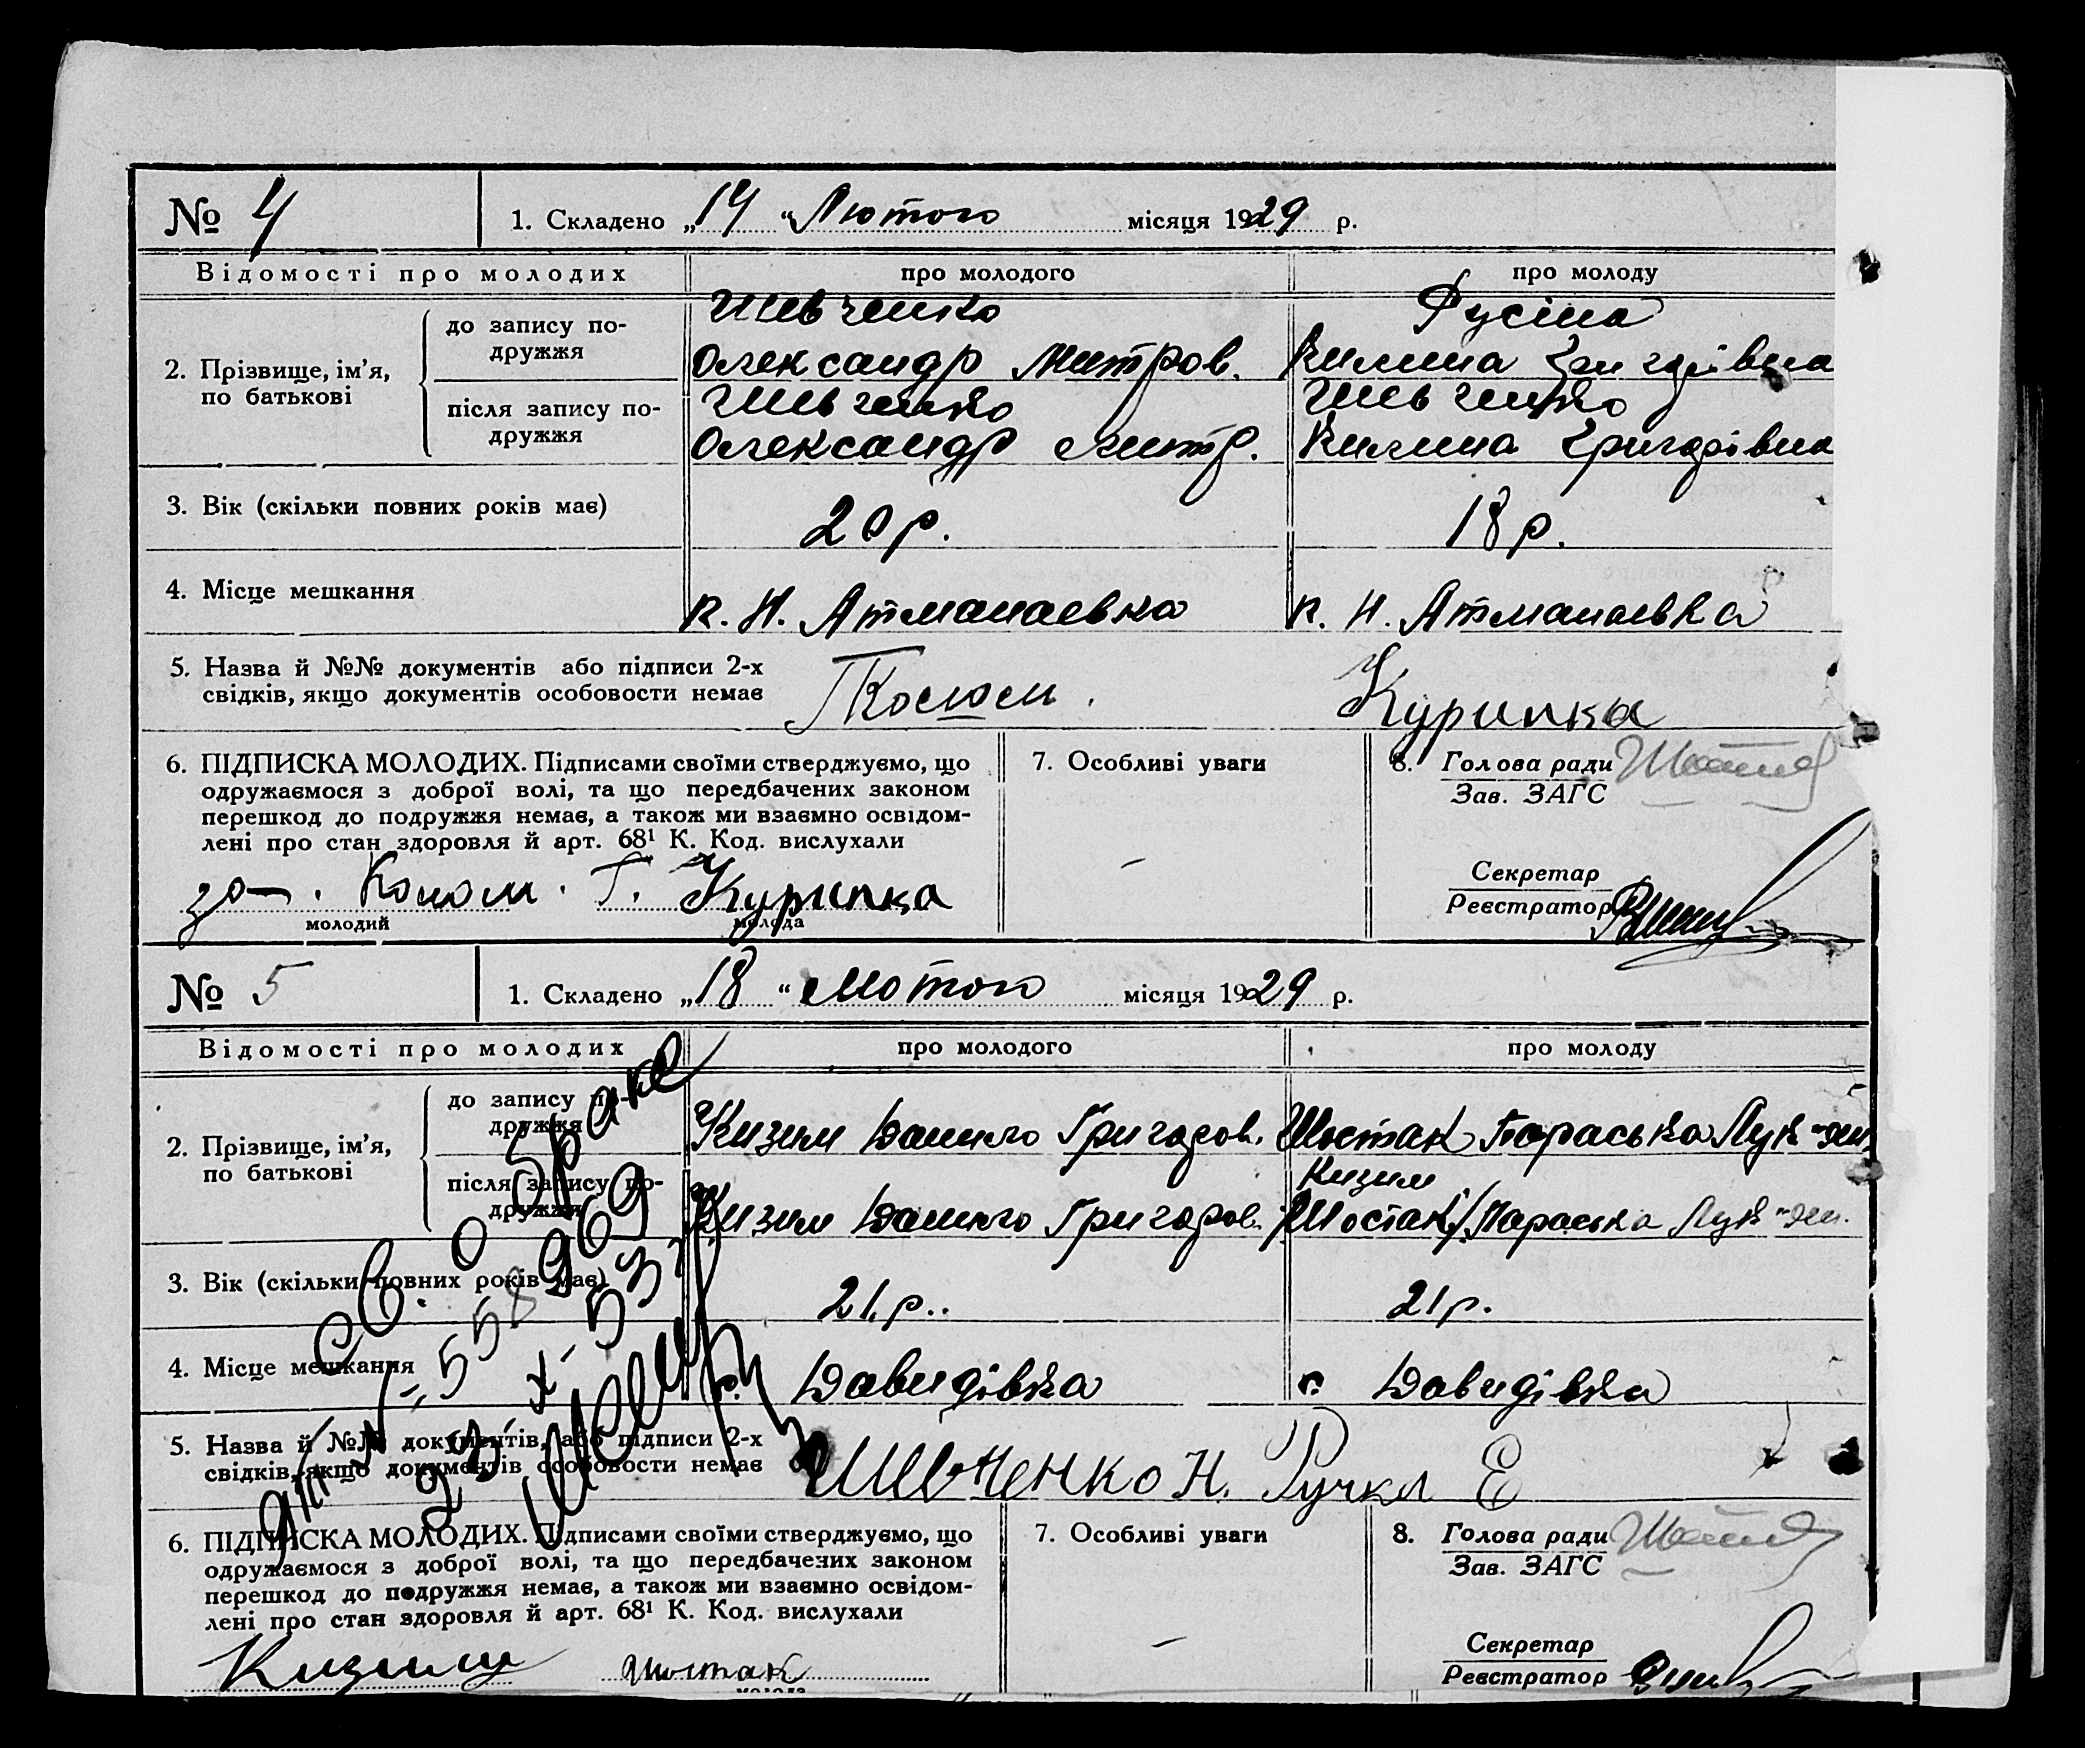 № 4
1. Складено „14“ Лютого місяця 1929 р.
Відомості про молодих
про молодого
про молоду
2. Прізвище, ім’я, по батькові
до запису подружжя
Шевченко
Олександр Митров.
Русіна
Килина Григорівна
після запису подружжя
Шевченко
Олександр Митр.
Шевченко
Килина Григорівна
3. Вік (скільки повних років має)
20 р.
18 р.
4. Місце мешкання
к. Н. Атманаевка
к. Н. Атманаевка
5. Назва й №№ документів або підписи 2-х
свідків, якщо документів особовости немає
Курипка
6. ПІДПИСКА МОЛОДИХ. Підписами своїми стверджуємо, що
одружаємося з доброї волі, та що передбачених законом
перешкод до подружжя немає, а також ми взаємно освідом-
лені про стан здоровля й арт. 68¹ К. Код. вислухали
за Т. Курипка
молодий
молода
7. Особливі уваги
–
8. Голова ради
Зав. ЗАГС
Секретар
Реєстратор
№ 5
1. Складено „18“ Лютого місяця 1929 р.
Відомості про молодих
про молодого
про молоду
2. Прізвище, ім’я,
по батькові
до запису по-
дружжя
Кизим Данило Григоров.
Шостак Параська Лук-
після запису по-
дружжя
Кизим Данило Григоров.
Кизим
/Шостак/ Параська Лук-
3. Вік (скільки повних років має)
21 р.
21 р.
4. Місце мешкання
с. Давидівка
с. Давидівка
св. о браке
5. Назва й №№ документів, або підписи 2-х
свідків, якщо документів особовости немає
Шевченко Н. Ручка Е
6. ПІДПИСКА МОЛОДИХ. Підписами своїми стверджуємо, що
одружаємося з доброї волі, та що передбачених законом
перешкод до подружжя немає, а також ми взаємно освідом-
лені про стан здоровля й арт. 68¹ К. Код. вислухали
Кизим
Шостак
молода
7. Особливі уваги
–
8. Голова ради
Зав. ЗАГС
Секретар
Реєстратор